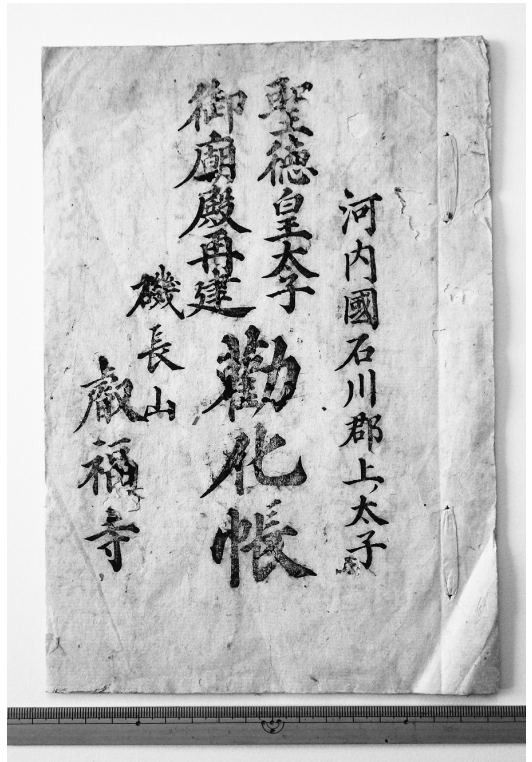 河内國石川郡上太子
聖徳皇太子
御廟殿再建
勸化帳
磯長山
叡福寺